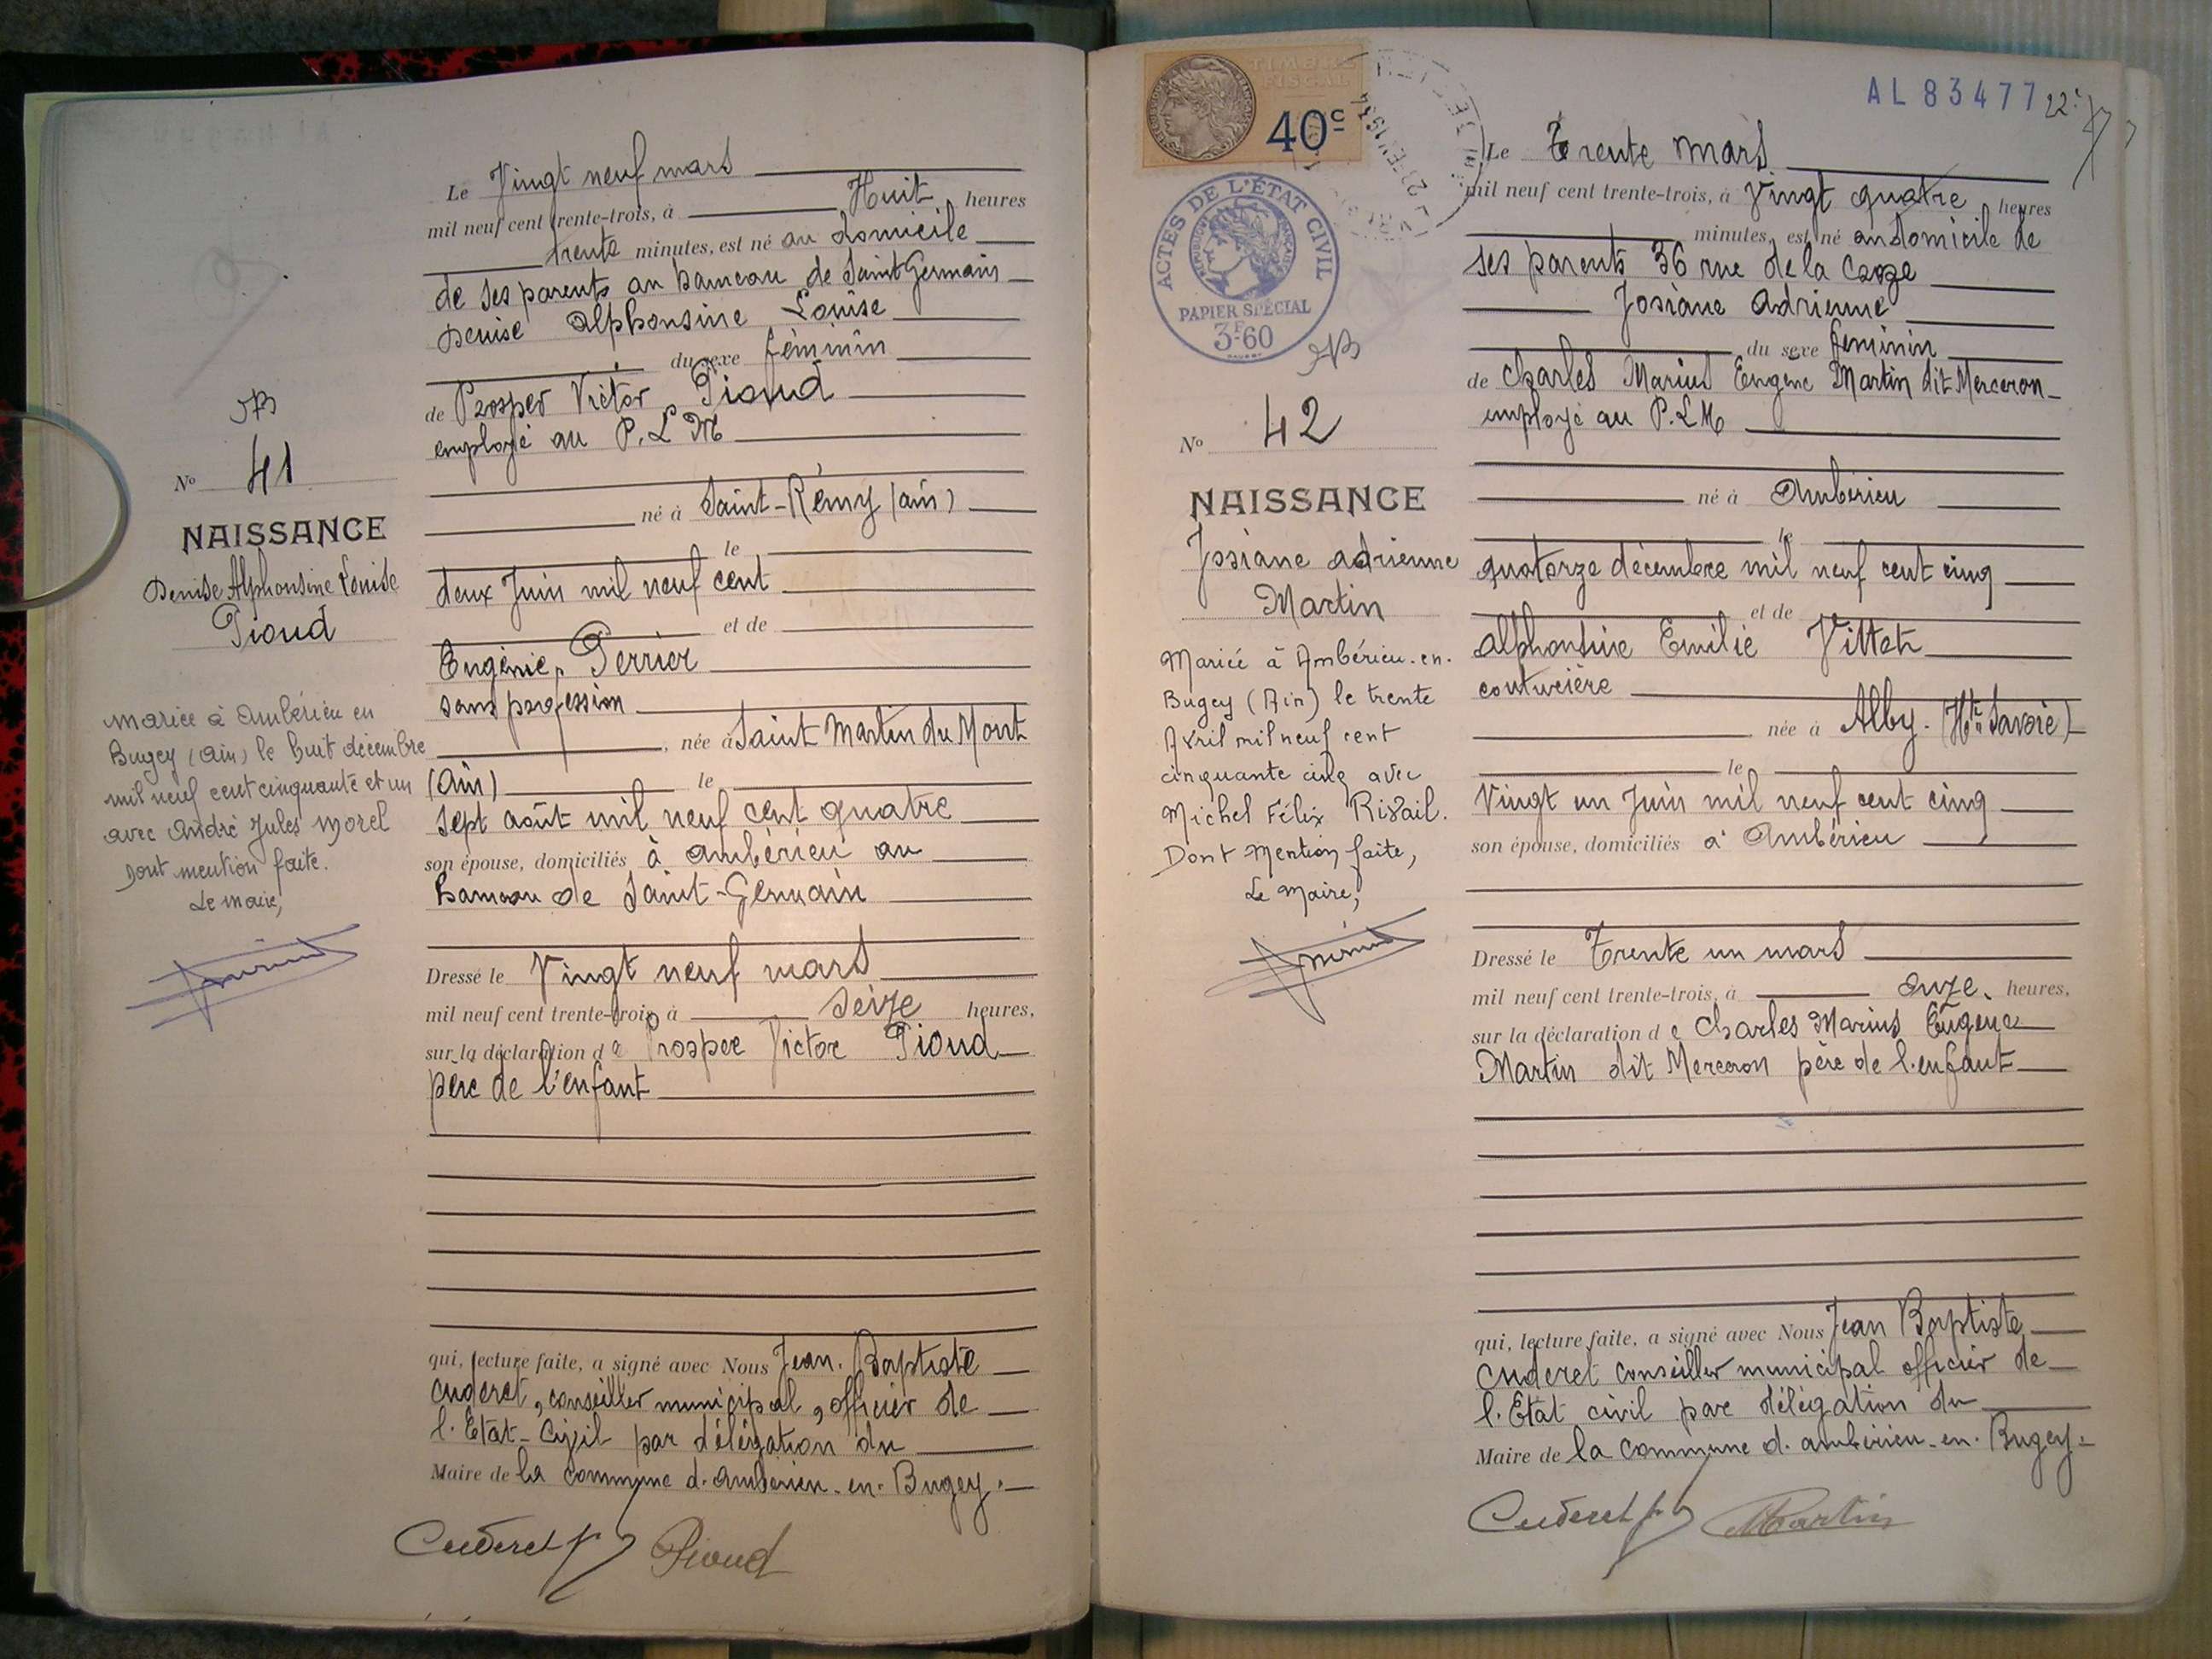 Le Vingt neuf mars
mil neuf cent trente-trois, à Huit heures
trente minutes, est né au domicile
de ses parents au hameau de Saint Germain
Denise Alphonsine Louise
du sexe féminin
de Prosper Victor Pioud
employé au P.L.M
né à Saint-Rémy (ain)
le
deux Juin mil neuf cent
et de
Eugénie Perrier
sans profession
, née à Saint Martin du Mont
(Ain) le
sept août mil neuf cent quatre
son épouse, domiciliés à Ambérieu au
hameau de Saint-Germain
Dressé le Vingt neuf mars
mil neuf cent trente-trois, à Seize heures,
sur la déclaration de Prosper Victor Pioud
père de l'enfant
qui, lecture faite, a signé avec Nous Jean-Baptiste
Cuderet, conseiller municipal, officier de
l'Etat-Civil par délégation du
Maire de la commune d'Ambérieu-en-Bugey.
Cuderet Pioud
No 41
NAISSANCE
Denise Alphonsine Louise
Pioud
Mariée à Ambérieu en
Bugey (Ain) le huit décembre
mil neuf cent cinquante et un
avec André Jules Morel
Dont mention faite.
Le Maire,
TIMBRE
FISCAL
40c
AL 83477
ACTES DE L'ÉTAT CIVIL
PAPIER SPÉCIAL
3F60
No 42
NAISSANCE
Josiane Adrienne
Martin
Mariée à Ambérieu-en-
Bugey (Ain) le trente
Avril mil neuf cent
cinquante cinq avec
Michel Félix Rivail.
Dont Mention faite,
Le Maire,
Le Trente mars
mil neuf cent trente-trois, à Vingt quatre heures
minutes, est né au domicile de
ses parents 36 rue de la Croze
Josiane Adrienne
du sexe féminin
de Charles Marius Eugène Martin dit Merceron
employé au P.L.M
né à Ambérieu
le
quatorze décembre mil neuf cent cinq
et de
Alphonsine Emilie Vittet
couturière
née à Alby. (Hte Savoie)
le
Vingt un Juin mil neuf cent cinq
son épouse, domiciliés à Ambérieu
Dressé le Trente un mars
mil neuf cent trente-trois, à onze heures,
sur la déclaration de Charles Marius Eugène
Martin dit Merceron père de l'enfant
qui, lecture faite, a signé avec Nous Jean Baptiste
Cuderet conseiller municipal officier de
l'Etat civil par délégation du
Maire de la commune d'Ambérieu-en-Bugey.
Cuderet Martin